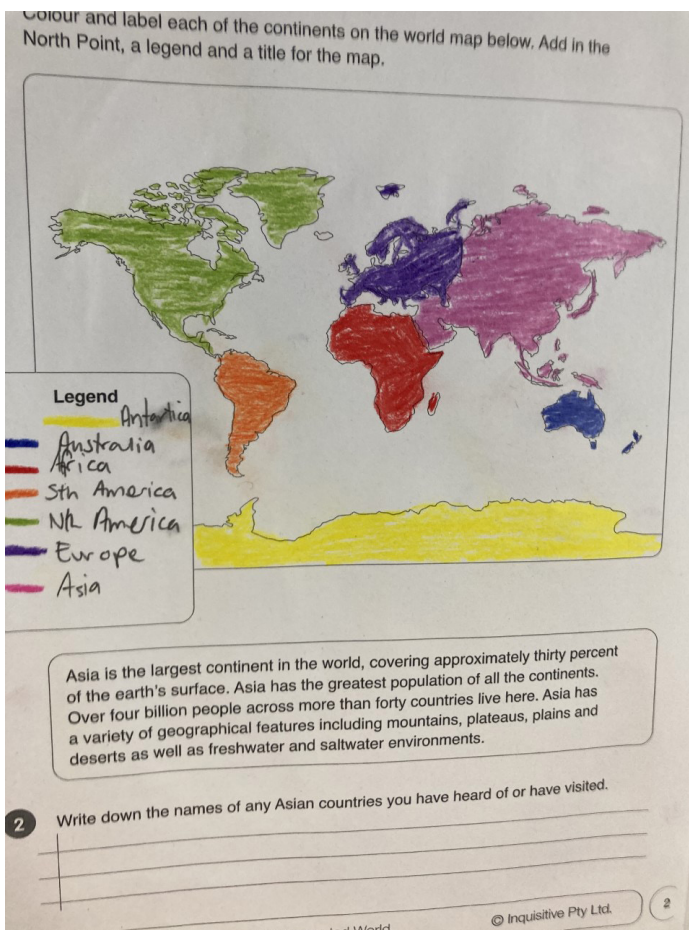 Colour and label each of the continents on the world map below. Add in the
North Point, a legend and a title for the map.
Legend
Antartica
Australia
Africa
Sth America
Nth America
Europe
Asia
Asia is the largest continent in the world, covering approximately thirty percent
of the earth's surface. Asia has the greatest population of all the continents.
Over four billion people across more than forty countries live here. Asia has
a variety of geographical features including mountains, plateaus, plains and
deserts as well as freshwater and saltwater environments.
2 Write down the names of any Asian countries you have heard of or have visited.
World
© Inquisitive Pty Ltd. 2